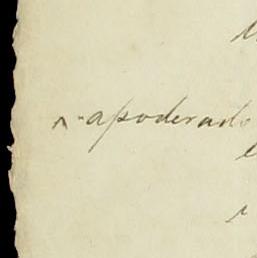 ^ apoderado